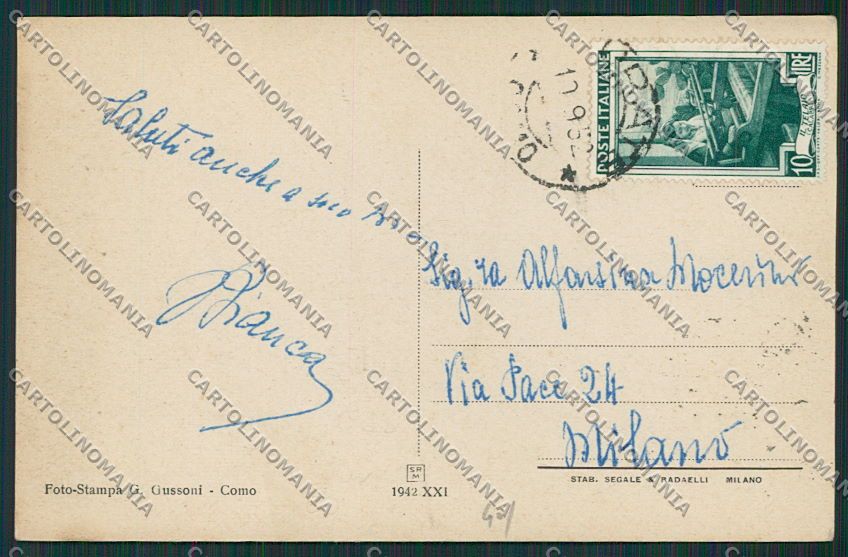 Saluti anche a
Bianca
POSTE ITALIANE
10 LIRE
9.52
Sig.ra Alfonsina
Via Pace 24
Milano
Foto-Stampa G. Gussoni - Como
SR
M
1942 XXI
STAB. SEGALE & RADAELLI MILANO
CARTOLINOMANIA